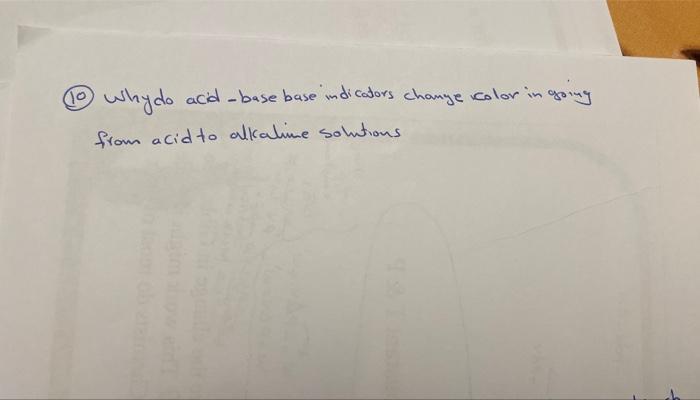 10 Why do acid-base base indicators change color in going
from acid to alkaline solutions